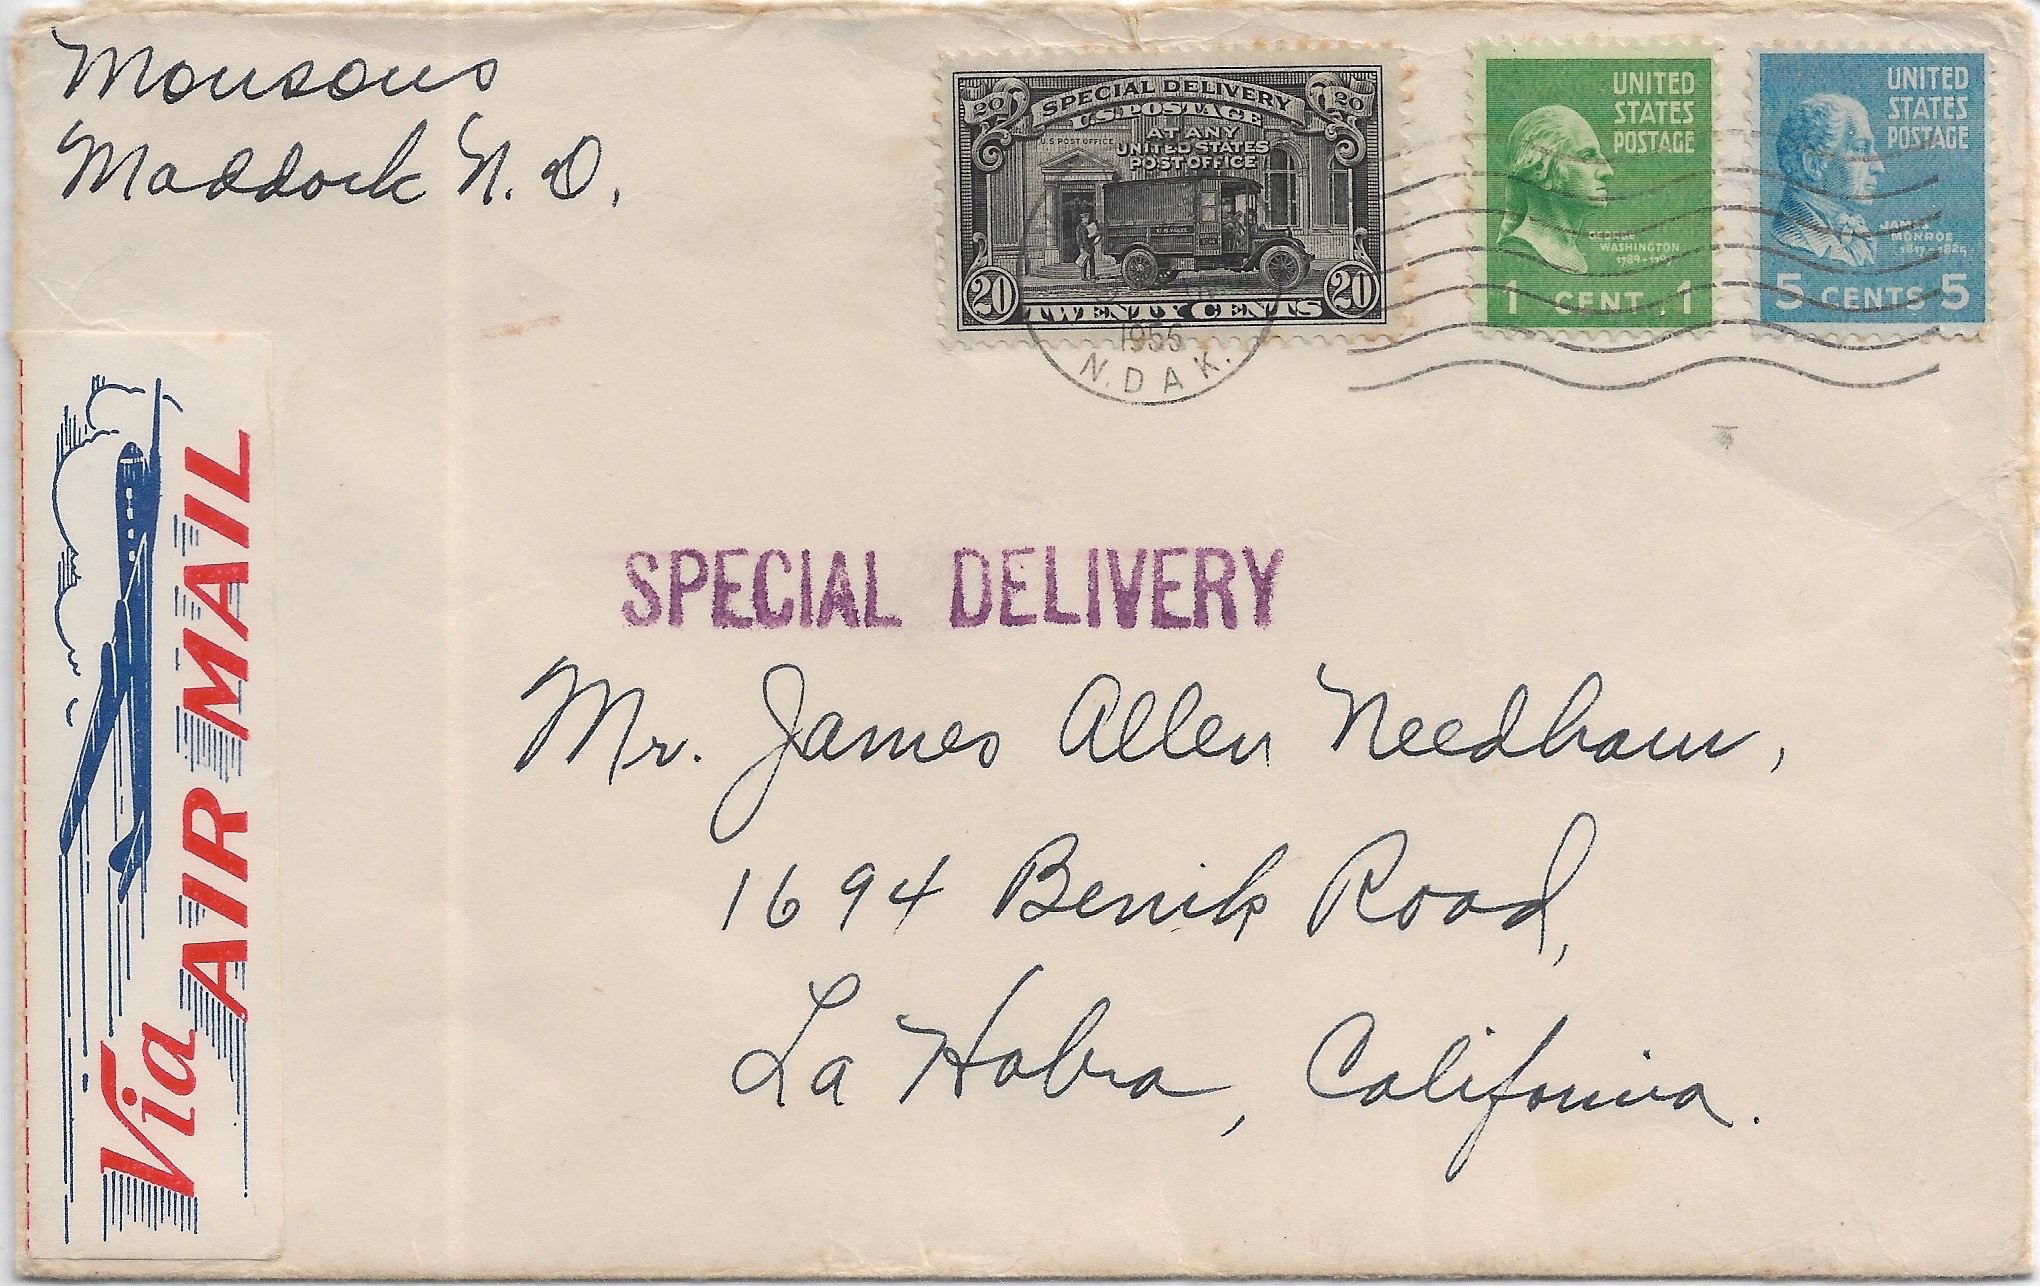 Monsons
Maddock N. D.
20 SPECIAL DELIVERY 20
U.S. POSTAGE
AT ANY
UNITED STATES
POST OFFICE
U.S POST OFFICE
20 TWENTY CENTS 20
UNITED
STATES
POSTAGE
GEORGE
WASHINGTON
1789-1797
1 CENT 1
UNITED
STATES
POSTAGE
JAMES
MONROE
1817-1825
5 CENTS 5
1956
N. DAK.
Via AIR MAIL
SPECIAL DELIVERY
Mr. James Allen Needham,
1694 Benik Road,
La Habra, California.